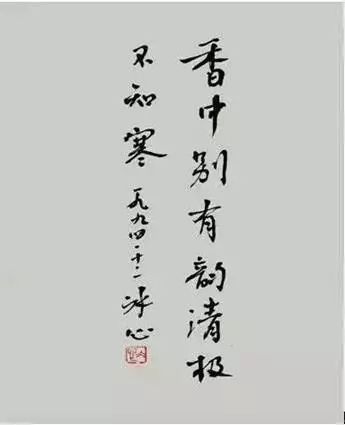 香中别有韵清极
不知寒 一九九四十二 冰心